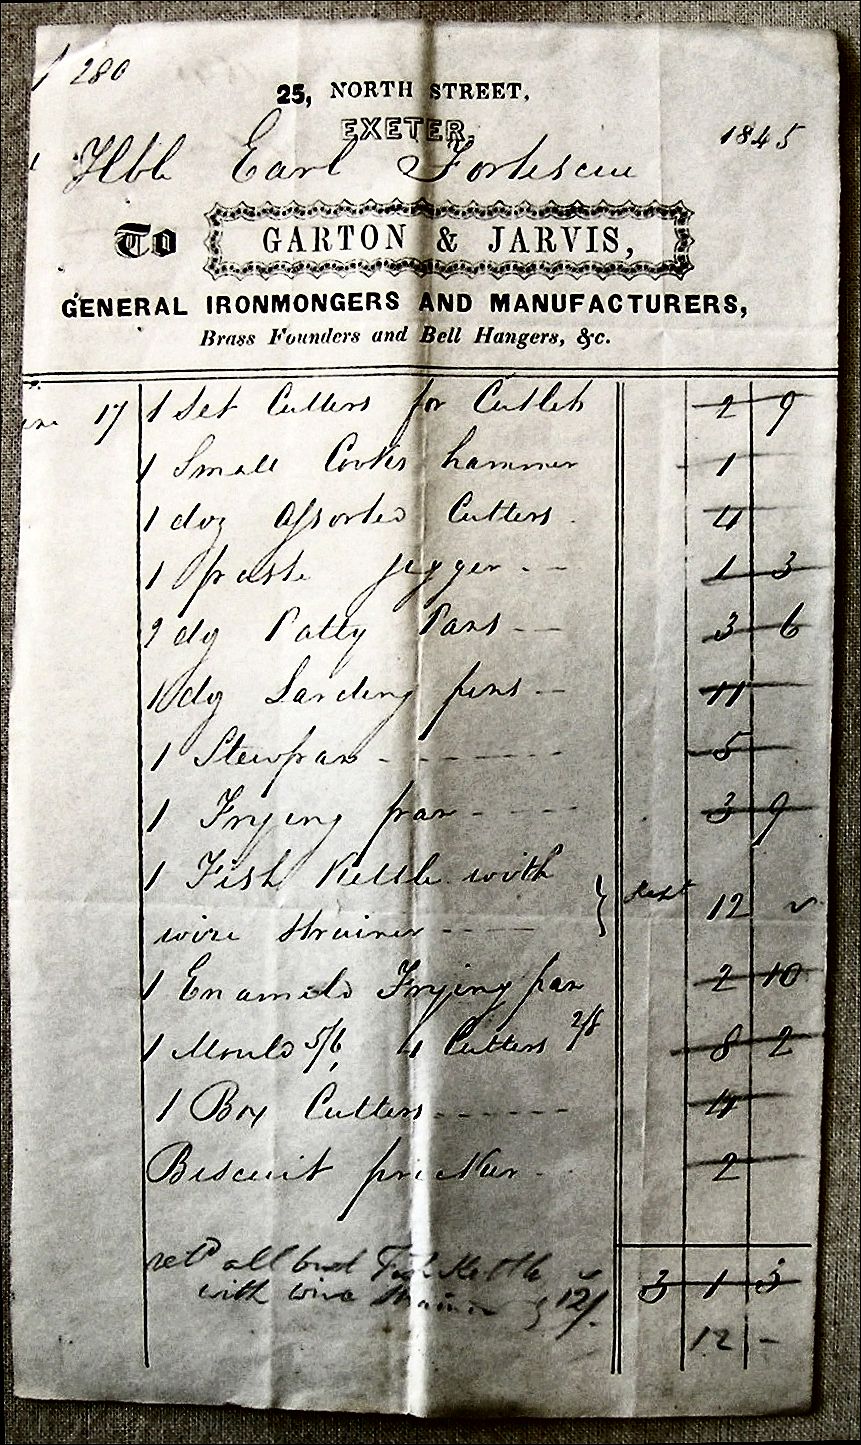 280
25, NORTH STREET,
EXETER,
1845
Hble Earl Fortescue
To GARTON & JARVIS,
GENERAL IRONMONGERS AND MANUFACTURERS,
Brass Founders and Bell Hangers, &c.
17 1 Set Cutters for Cutlets 2 9
1 Small Cooks hammer 1
1 doz assorted Cutters 4
1 paste jigger 1 3
2 dz Patty Pans 3 6
1 dz Larding pins 11
1 Stewpan 5
1 Frying pan 3 9
1 Fish Kettle with
wire strainer } Kept 12
1 Enameld Frying pan 2 10
1 Mould 5/6, 4 Cutters 2/8 8 2
1 Box Cutters
Biscuit pricker 2
retd all but Fish Kettle
with wire strainer } 12/.
3 1 3
12 -